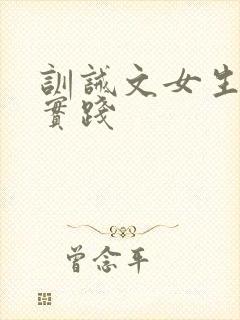 訓誡文女生
實踐
曾念平